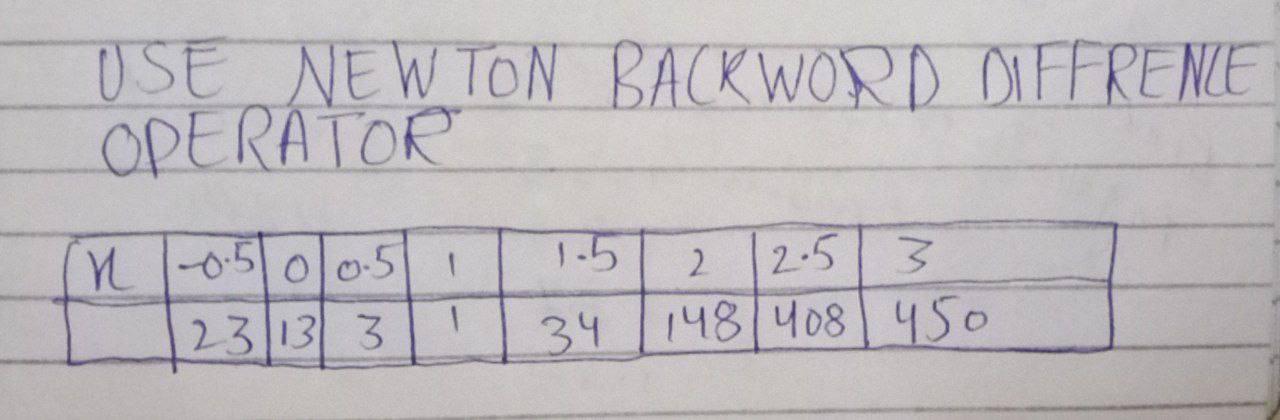 USE NEWTON BACKWORD DIFFRENCE
OPERATOR
x -0.5 0 0.5 1 1.5 2 2.5 3
23 13 3 1 34 148 408 450